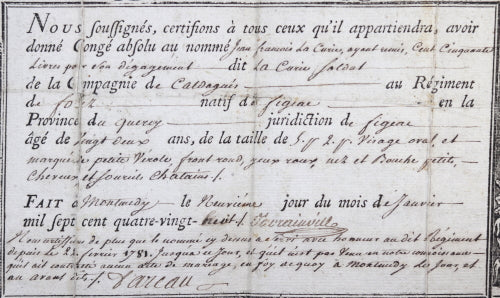 Nous soussignés, certifions à tous ceux qu'il appartiendra, avoir
donné Congé absolu au nommé Jean francois La Curie, ayant remis, Cent Cinquante
Livres par Son dégagement dit La Curie Soldat
de la Compagnie de Caldaguès au Régiment
de foix natif de figeac en la
Province du quercy juridiction de figeac
âgé de vingt deux ans, de la taille de 5. p 2. p. Visage oval, et
marqué de petite Vérole, front rond, yeux roux, nez et Bouche petite,
Cheveux et Sourcils Chatains /.
Fait à Montmedy le Neuvième jour du mois de Janvier
mil sept cent quatre-vingt-huit /.
Nous certifions de plus que le nommé cy dessus a Servi avec honneur au dit Régiment
depuis le 22 fevrier 1781. Jusqu'a ce Jour, et qu'il n'est pas venu en notre connoissance
qu'il ait contracté aucun acte de mariage, en foy de quoy à Montmedy les Jour, et
an avant dits /.